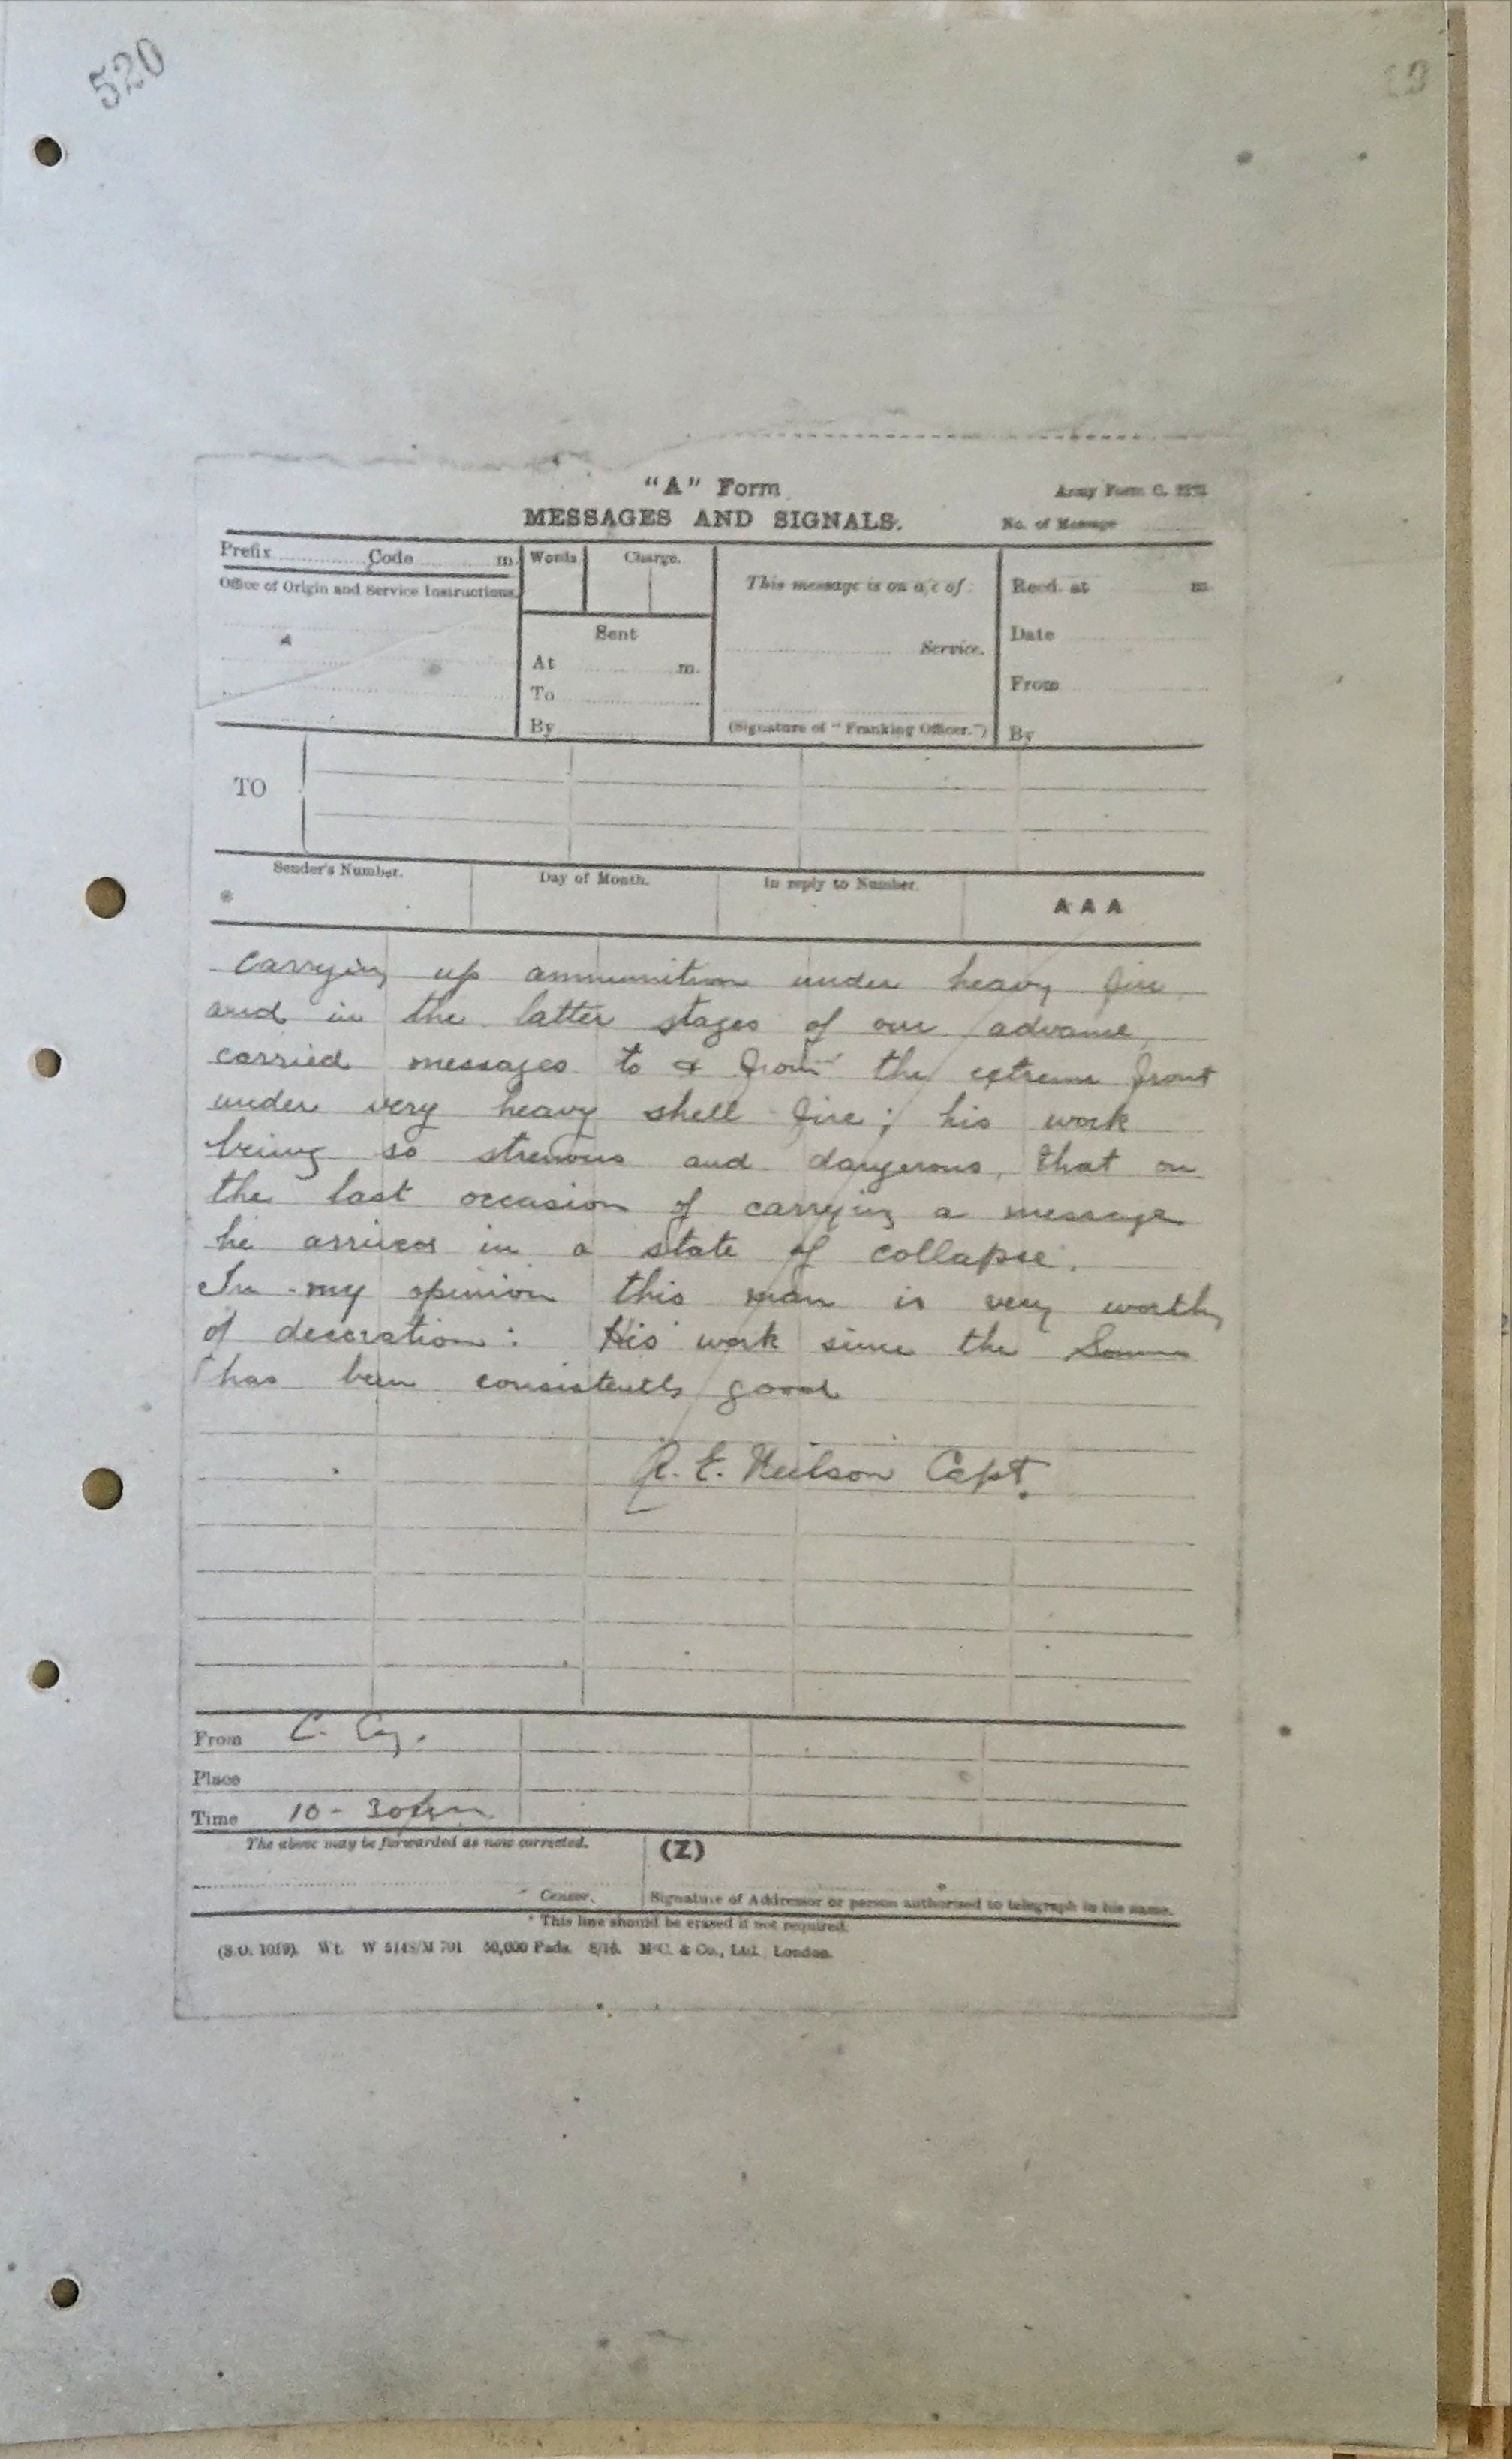 520
19
"A" Form
Army Form C. 2121
MESSAGES AND SIGNALS.
No. of Message
Prefix Code m. Words Charge.
This message is on a/c of: Recd. at m.
Office of Origin and Service Instructions.
Sent
Service. Date
At m.
To
From
By
(Signature of "Franking Officer.") By
TO
Sender's Number. Day of Month. In reply to Number.
* AAA
carrying up ammunition under heavy fire
and in the latter stages of our advance,
carried messages to & from the extreme front
under very heavy shell fire; his work
being so strenous and dangerous, that on
the last occasion of carrying a message
he arrived in a state of collapse.
In my opinion this man is very worthy
of decoration: His work since the Somme
has been consistently good
R. E. Neilson Capt.
From C. Coy.
Place
Time 10-30pm
The above may be forwarded as now corrected. (Z)
Censor. Signature of Addressor or person authorised to telegraph in his name.
* This line should be erased if not required.
(S.O. 1019). Wt. W 5148/M 701 50,000 Pads. 8/16. McC. & Co., Ltd., London.